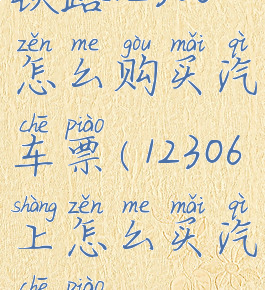 zěn me gòu mǎi qì
怎么购买汽
chē piào
车票(12306
shàng zěn me mǎi qì
上怎么买汽
chē piào